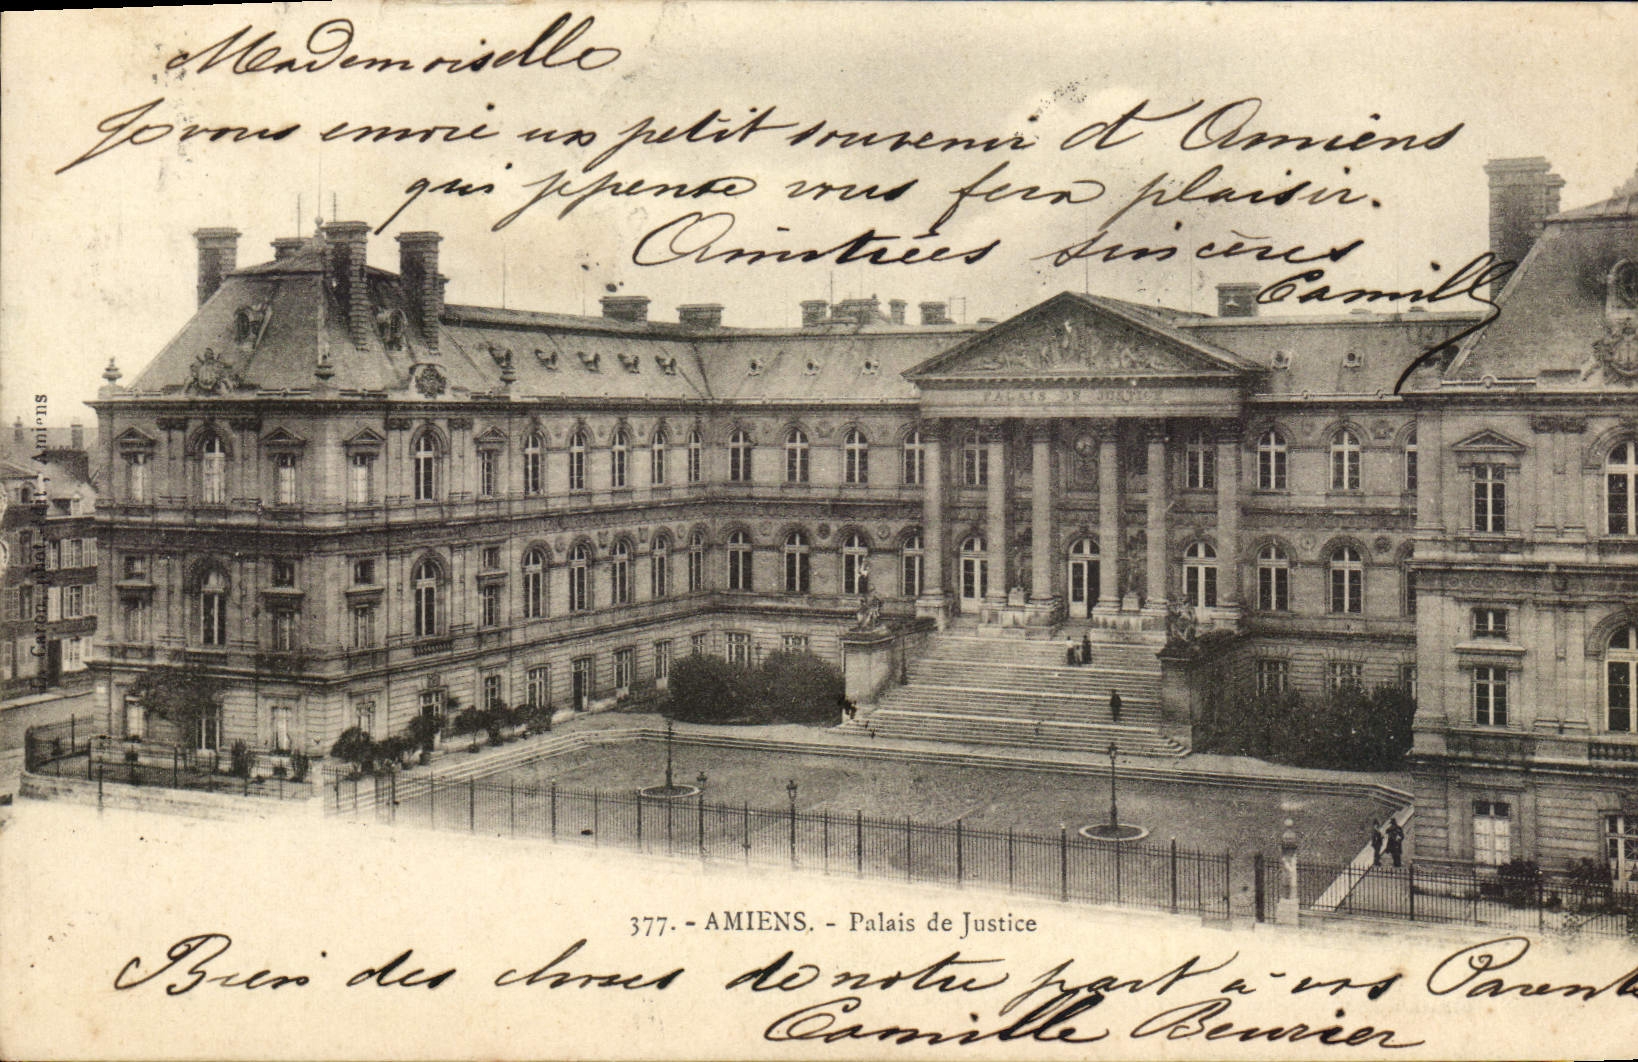 Mademoiselle
Je vous envoie un petit souvenir d'Amiens
qui je pense vous fera plaisir.
Amitiées sincères
Camille
PALAIS DE JUSTICE
L. Caron, phot. édit., Amiens
377. - AMIENS. - Palais de Justice
Bien des choses de notre part à vos Parents
Camille Beurier